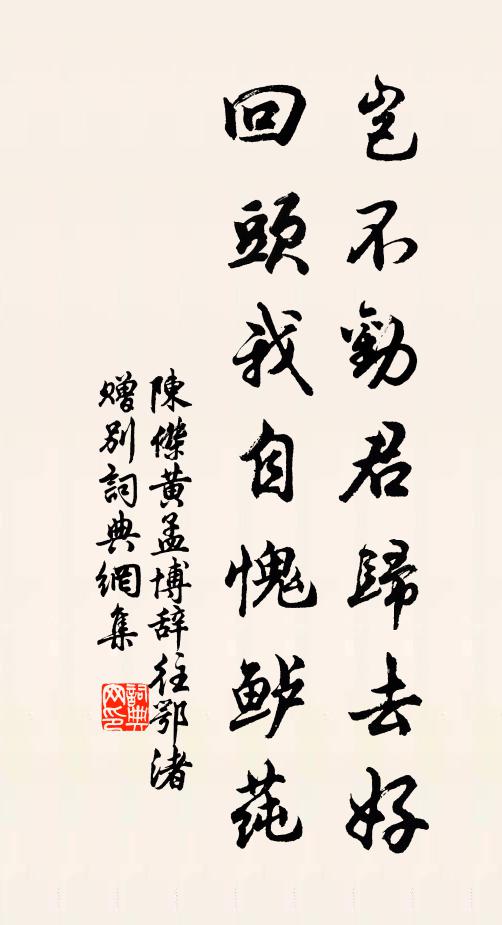 豈不勸君歸去好
回頭我自愧鲈莼
陳傑黃孟博辞往鄂渚
贈別詞典網集
詞典网印